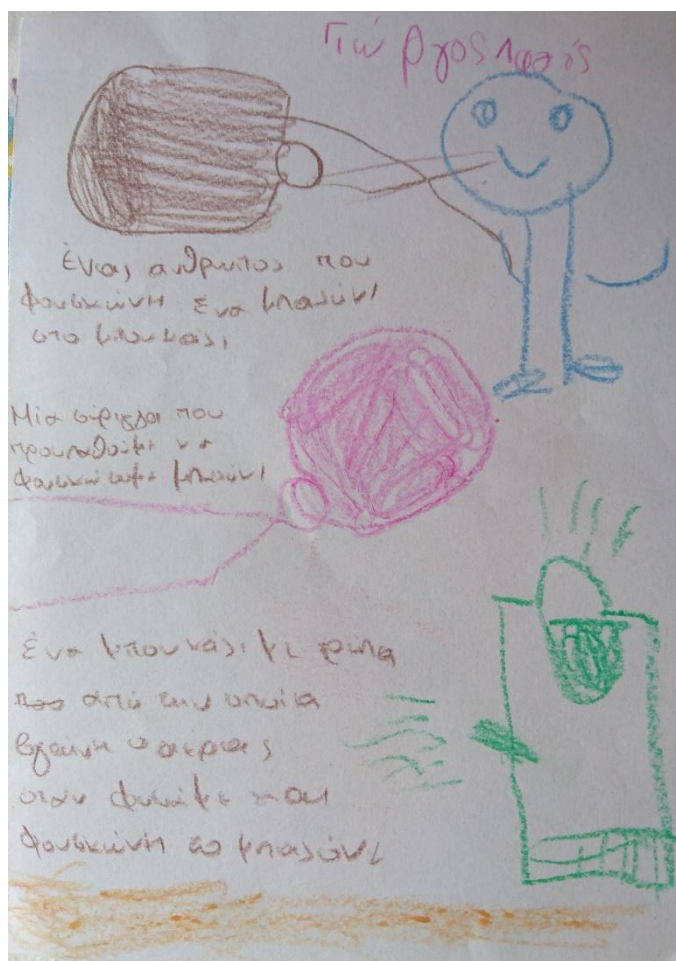 Γιώργος
Ένας ανθρωπος που
φουσκώνη ένα μπαλόνι
στο μπουκάλι
Μία σύριγγα που
προσπαθούμε να
φουσκώσωμε μπαλόνι
ένα μπουκάλι με τρύπα
από την οποία
βγαίνη ο αέρας
όταν φυσάμε και
φουσκώνη το μπαλόνι